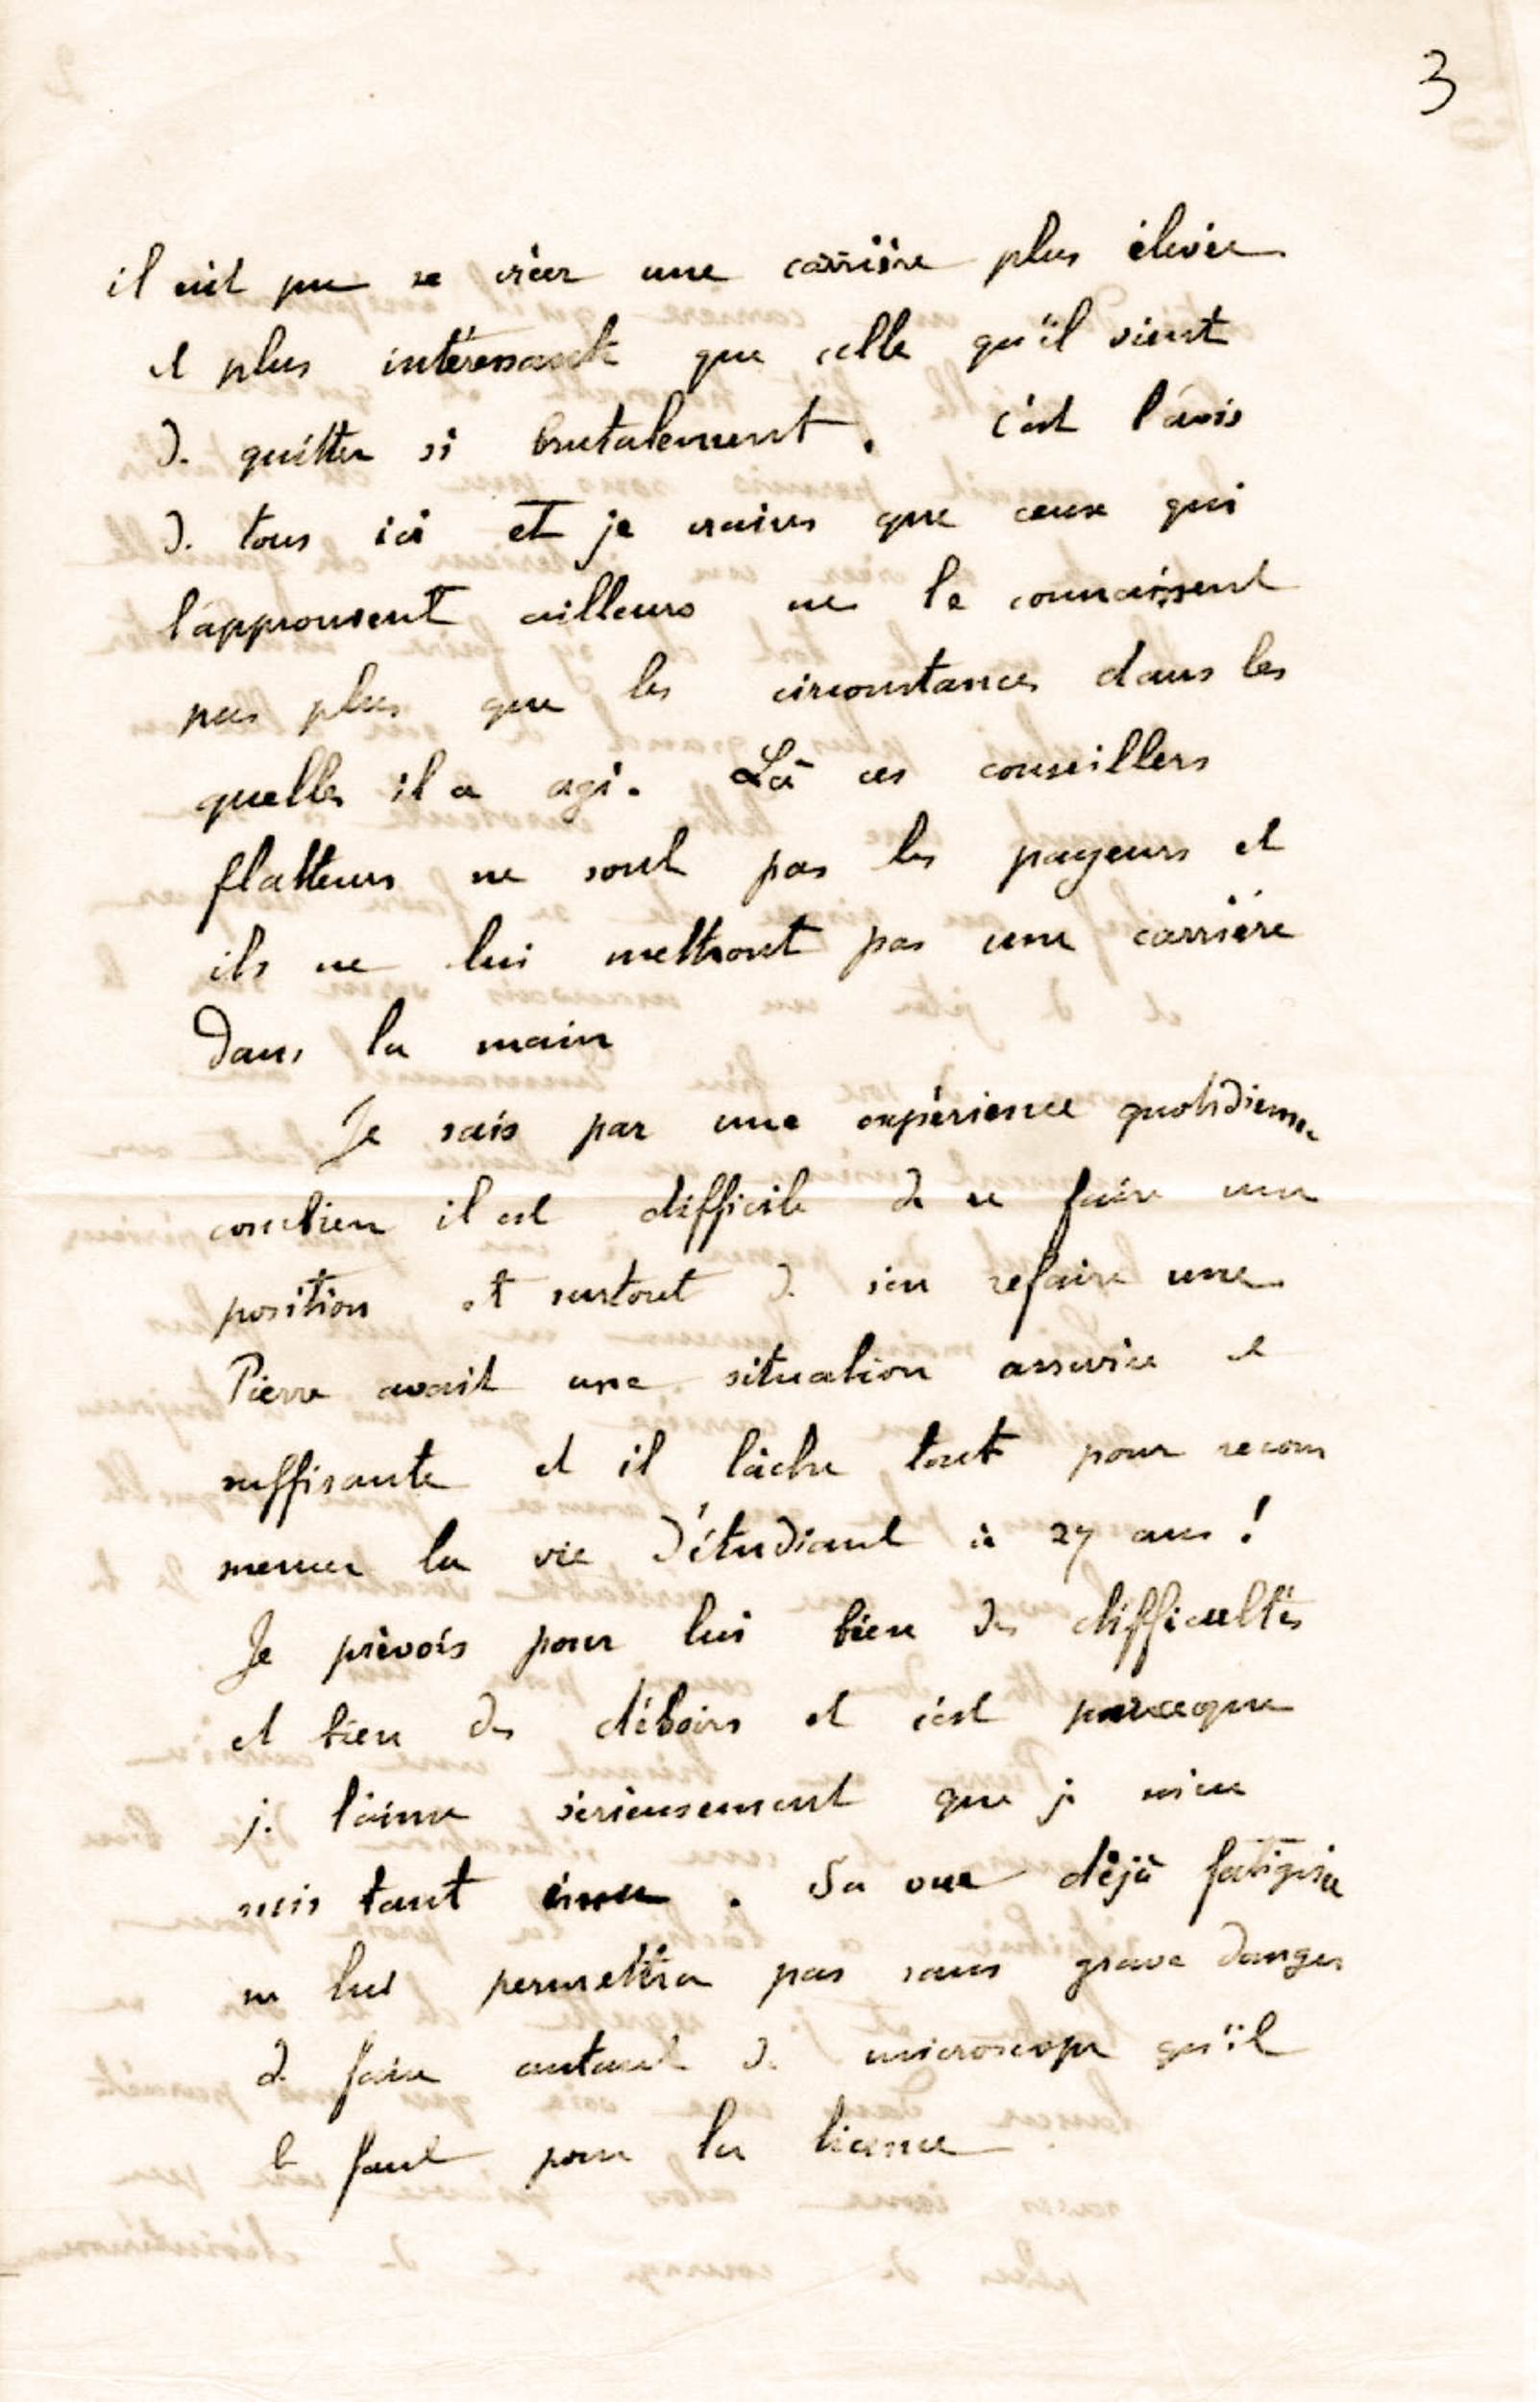 3
il eût pu se créer une carrière plus élevée
et plus intéressante que celle qu'il vient
de quitter si brutalement. C'est l'avis
de tous ici et je crains que ceux qui
l'approuvent ailleurs ne le connaissent
pas plus que les circonstances dans les
quelles il a agi. Là ces conseillers
flatteurs ne sont pas les payeurs et
ils ne lui mettront pas une carrière
dans la main
Je sais par une expérience quotidienne
combien il est difficile de se faire une
position et surtout de s'en refaire une
Pierre avait une situation assurée et
suffisante et il lâche tout pour recom
mencer la vie d'étudiant à 27 ans !
Je prévois pour lui bien des difficultés
et bien des déboires et c'est parceque
je l'aime sérieusement que je m'en
suis tant ému. Sa vue déjà fatiguée
ne lui permettra pas sans grave danger
de faire autant de microscope qu'il
le faut pour la licence